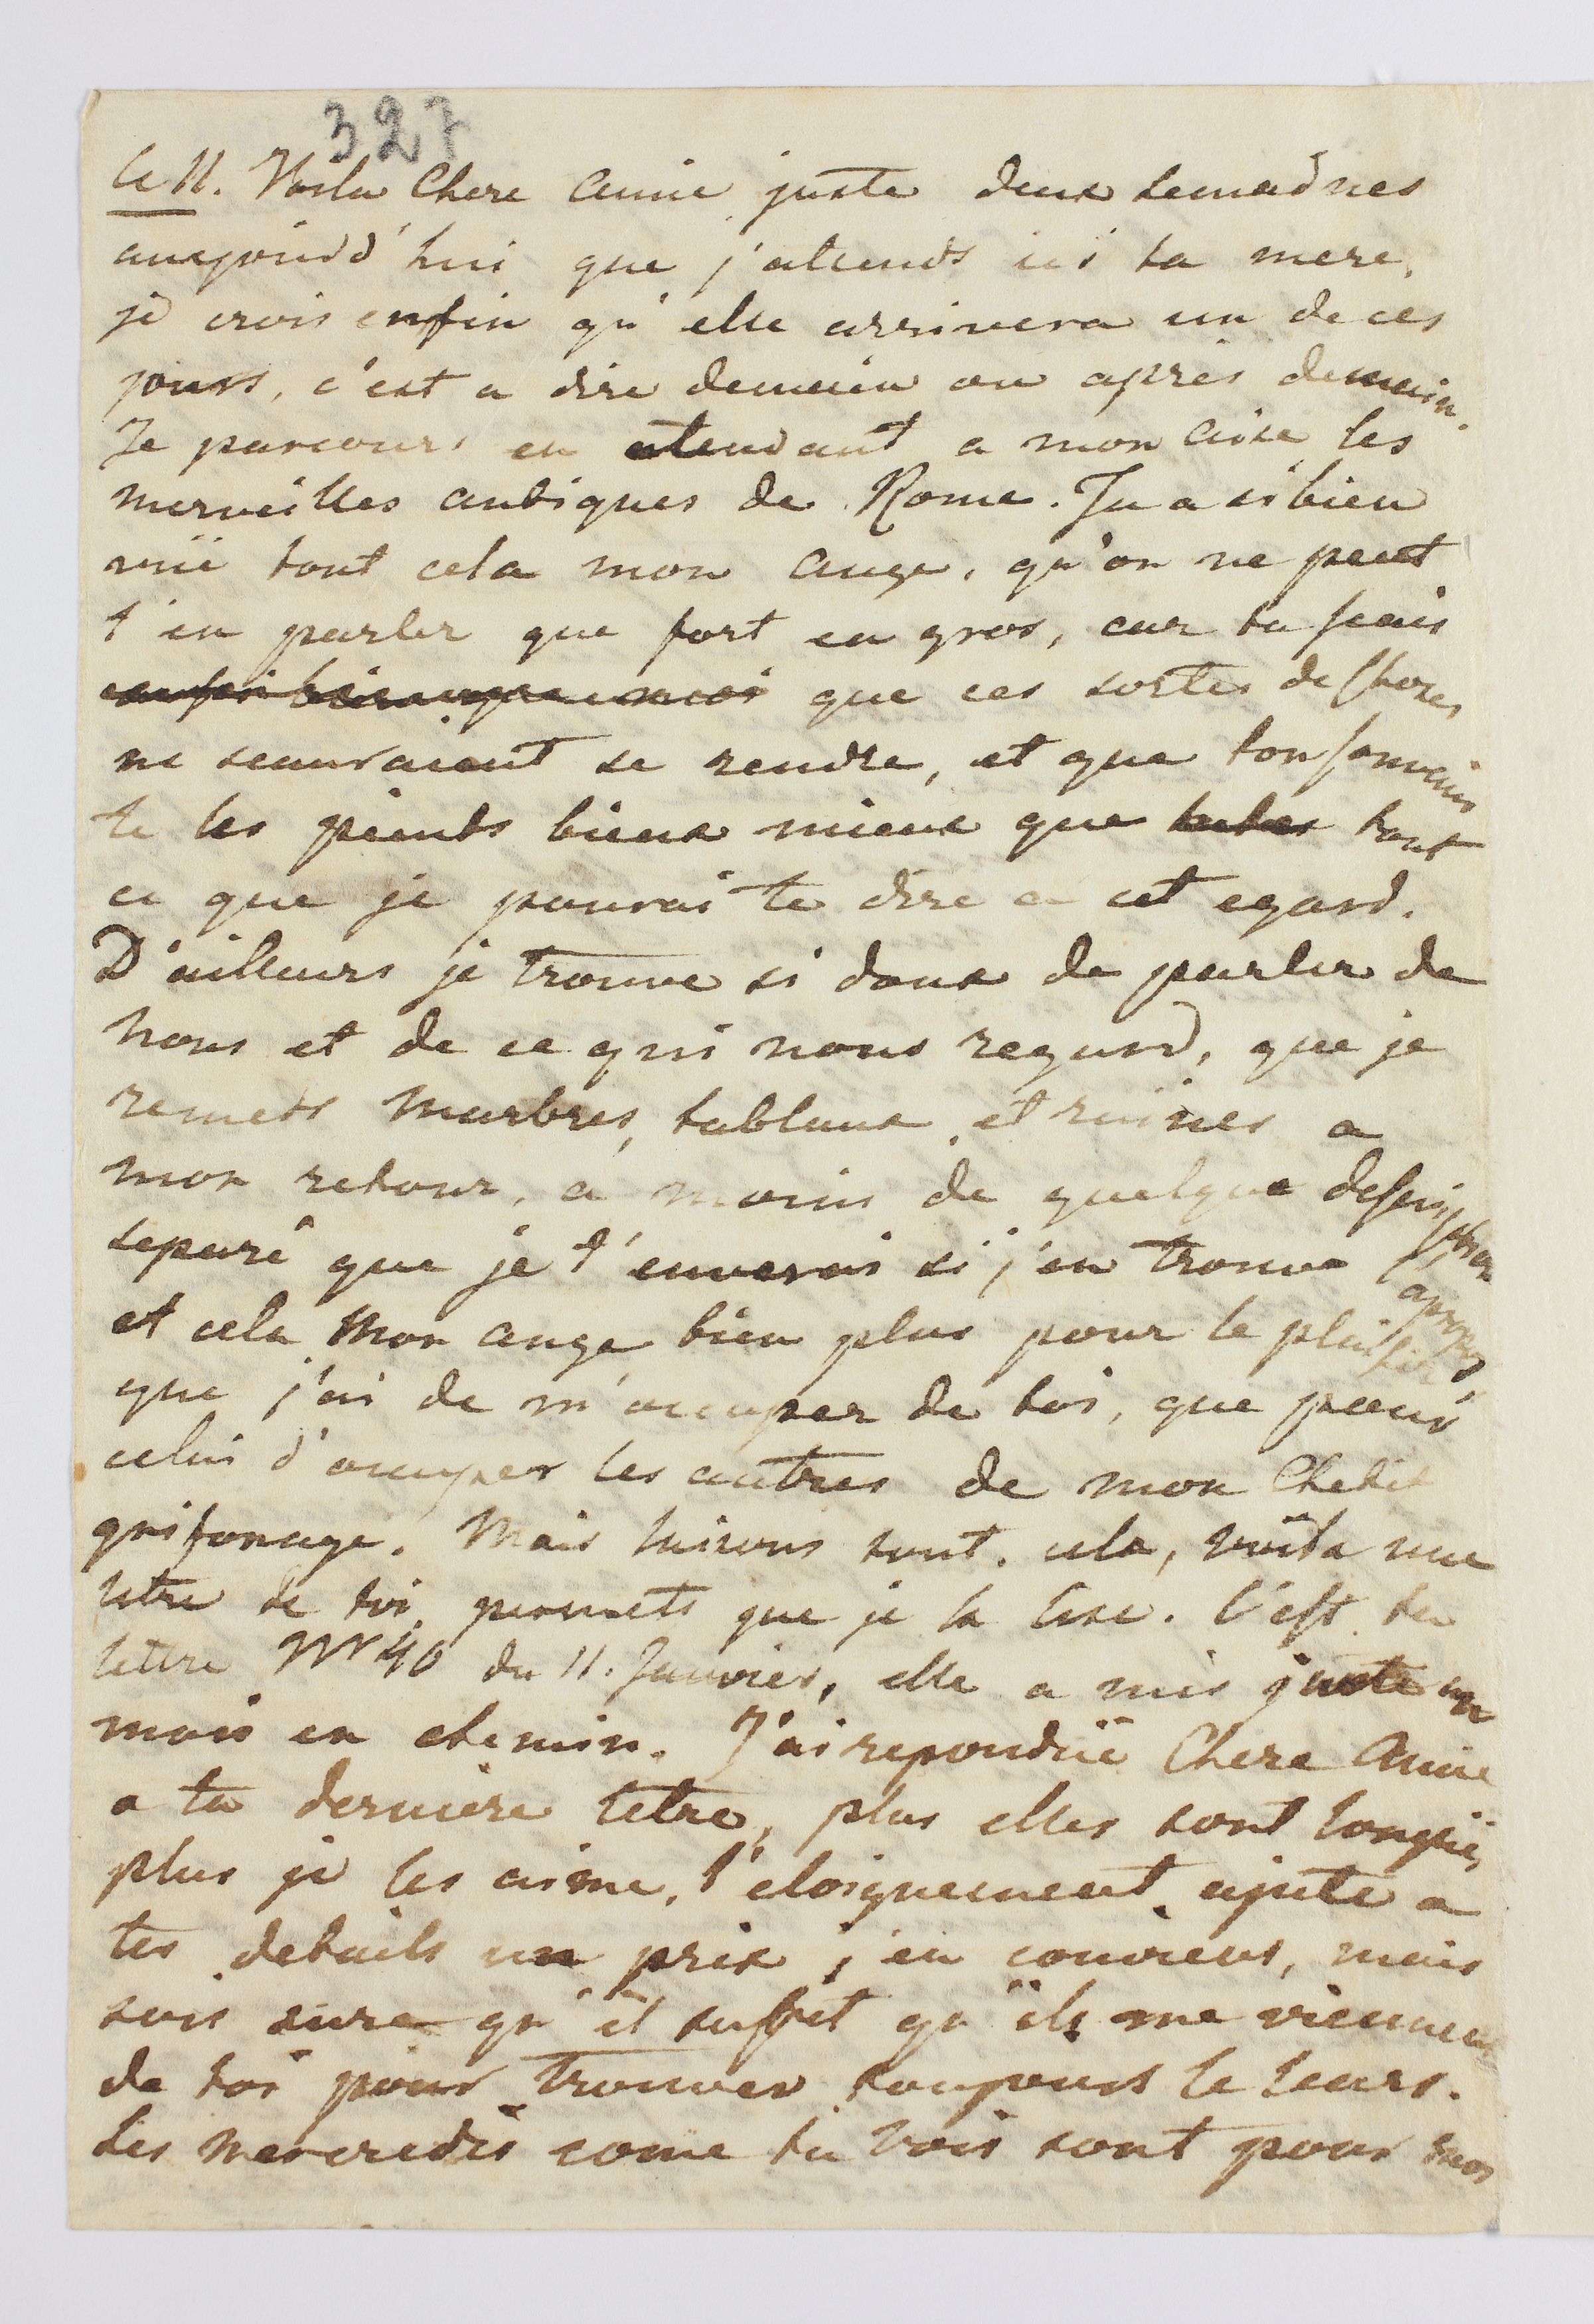 327
Le 11. Voila Chere Amie juste deux semaines
aujourd'hui que j'attends ici ta mere,
je crois enfin qu'elle arrivera un de ces
jours, c'est a dire demain ou après demain.
Je parcours en atendant a mon aise les
merveilles antiques de Rome. Tu a si bien
vuë tout cela mon ange, qu'on ne peut
t'en parler que fort en gros, car tu scais
que ces sortes de choses
ne scauraient se rendre, et que ton souvenir
te les peints bieux mieux que tout
ce que je pourai te dire a cet egard.
D'ailleurs je trouve si doux de parler de
nous et de ce qui nous regard, que je
remets marbres, tableaux, et ruines a
mon retour, a moins de quelque description
separé que je t'enverais si j'en trouve
apropos,
et cela mon ange bien plus pour le plaisir
que j'ai de m'occuper de toi, que pour
celui d'occuper les autres de mon Chetif
grifonage. Mais laisons tout cela, voila une
letre de toi, permets que je la lise. C'est ta
lettre Nr 40 du 11. Janvier, elle a mis juste un
mois en chemin. J'ai reponduë Chere Amie
a ta derniere letre, plus elles sont longuë,
plus je les aime, l'eloignement ajute a
tes details un prix, j'en conviens, mais
sois sure qu'il suffit qu'ils me viennent
de toi pour trouver toujours le leurs.
Les mercredis come tu vois sont pour moi